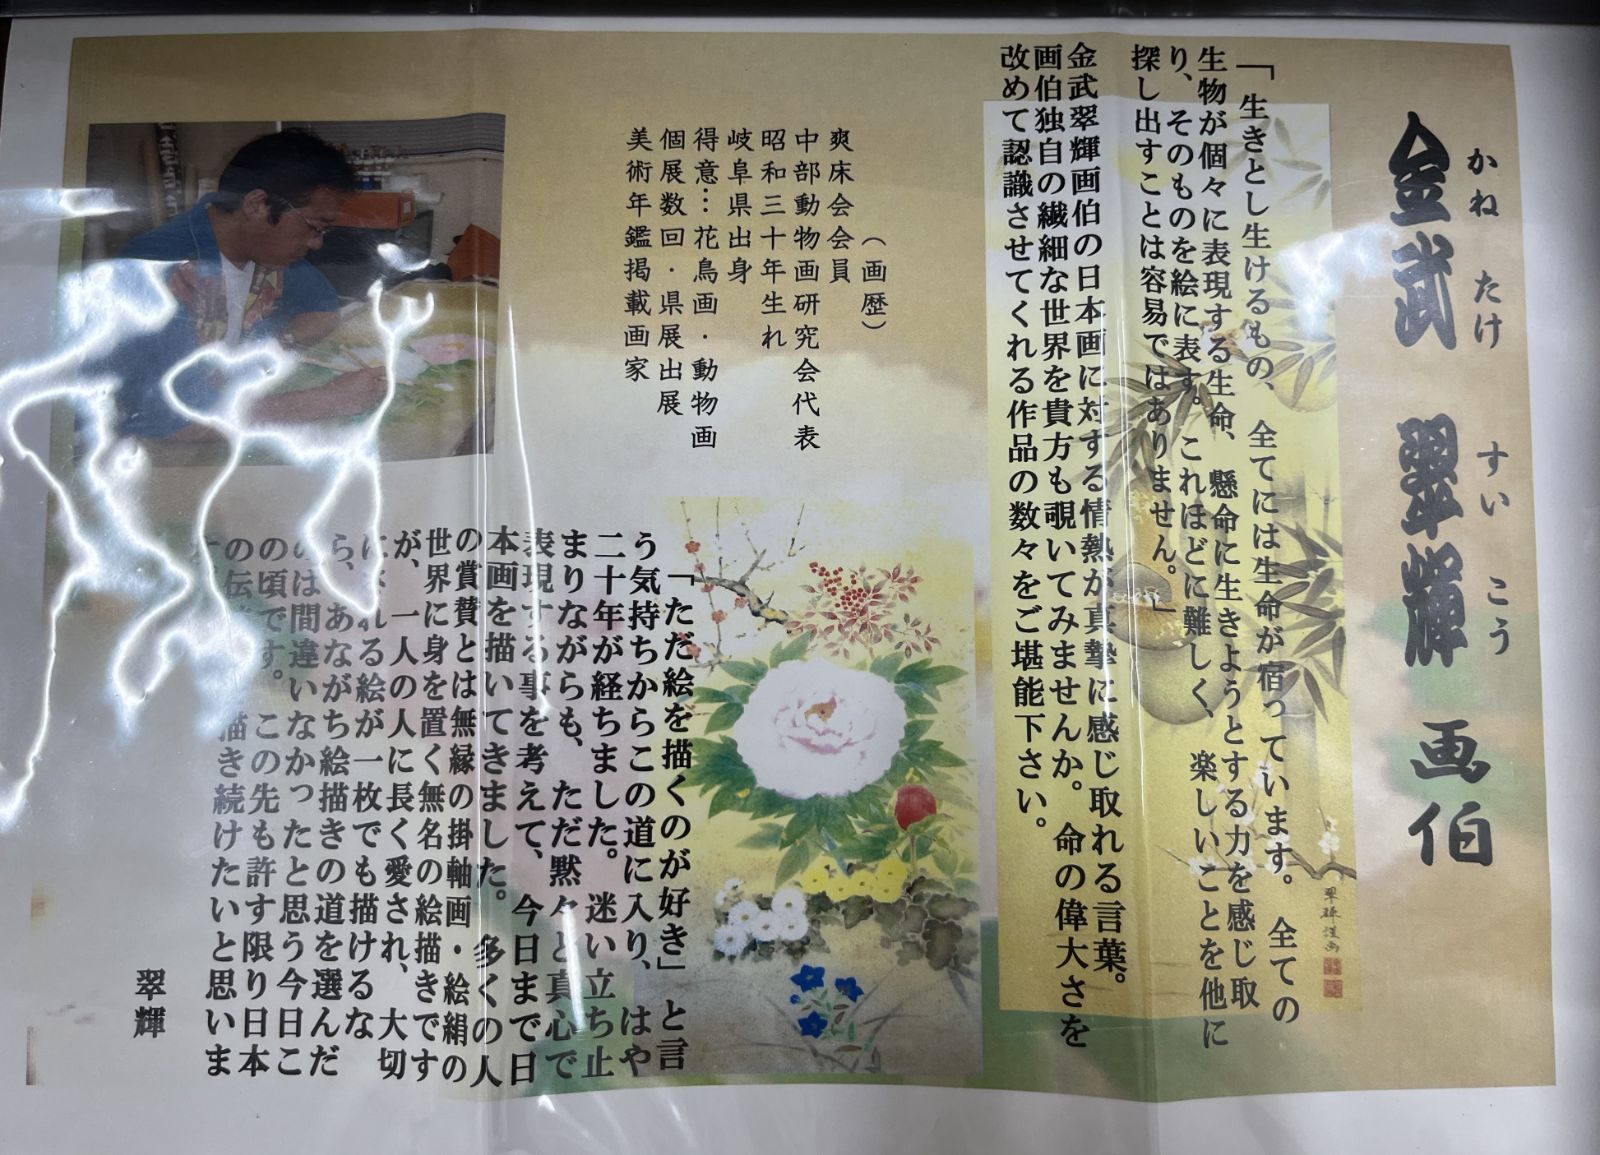 かね たけ すい こう
金武 翠輝 画伯
「生きとし生けるもの、全てには生命が宿っています。全ての
生物が個々に表現する生命、懸命に生きようとする力を感じ取
り、そのものを絵に表す。これほどに難しく、楽しいことを他に
探し出すことは容易ではありません。」
金武翠輝画伯の日本画に対する情熱が真摯に感じ取れる言葉。
画伯独自の繊細な世界を貴方も覗いてみませんか。命の偉大さを
改めて認識させてくれる作品の数々をご堪能下さい。
翠輝謹画
(画歴)
爽床会会員
中部動物画研究会代表
昭和三十年生れ
岐阜県出身
得意…花鳥画・動物画
個展数回・県展出展
美術年鑑掲載画家
「ただ絵を描くのが好き」と言
う気持ちからこの道に入り、はや
二十年が経ちました。迷い立ち止
まりながらも、ただ黙々と真心で
表現する事を考えて、今日まで日
本画を描いてきました。多くの人
の賞賛とは無縁の掛軸画・絵絹の
世界に身を置く無名の絵描きです
が、一人の人に長く愛され、大切
にされる絵が一枚でも描けるな
ら、あながち絵描きの道を選んだ
のは間違いなかったと思う今日こ
の頃です。この先も許す限り日本
の伝 描き続けたいと思いま
翠輝